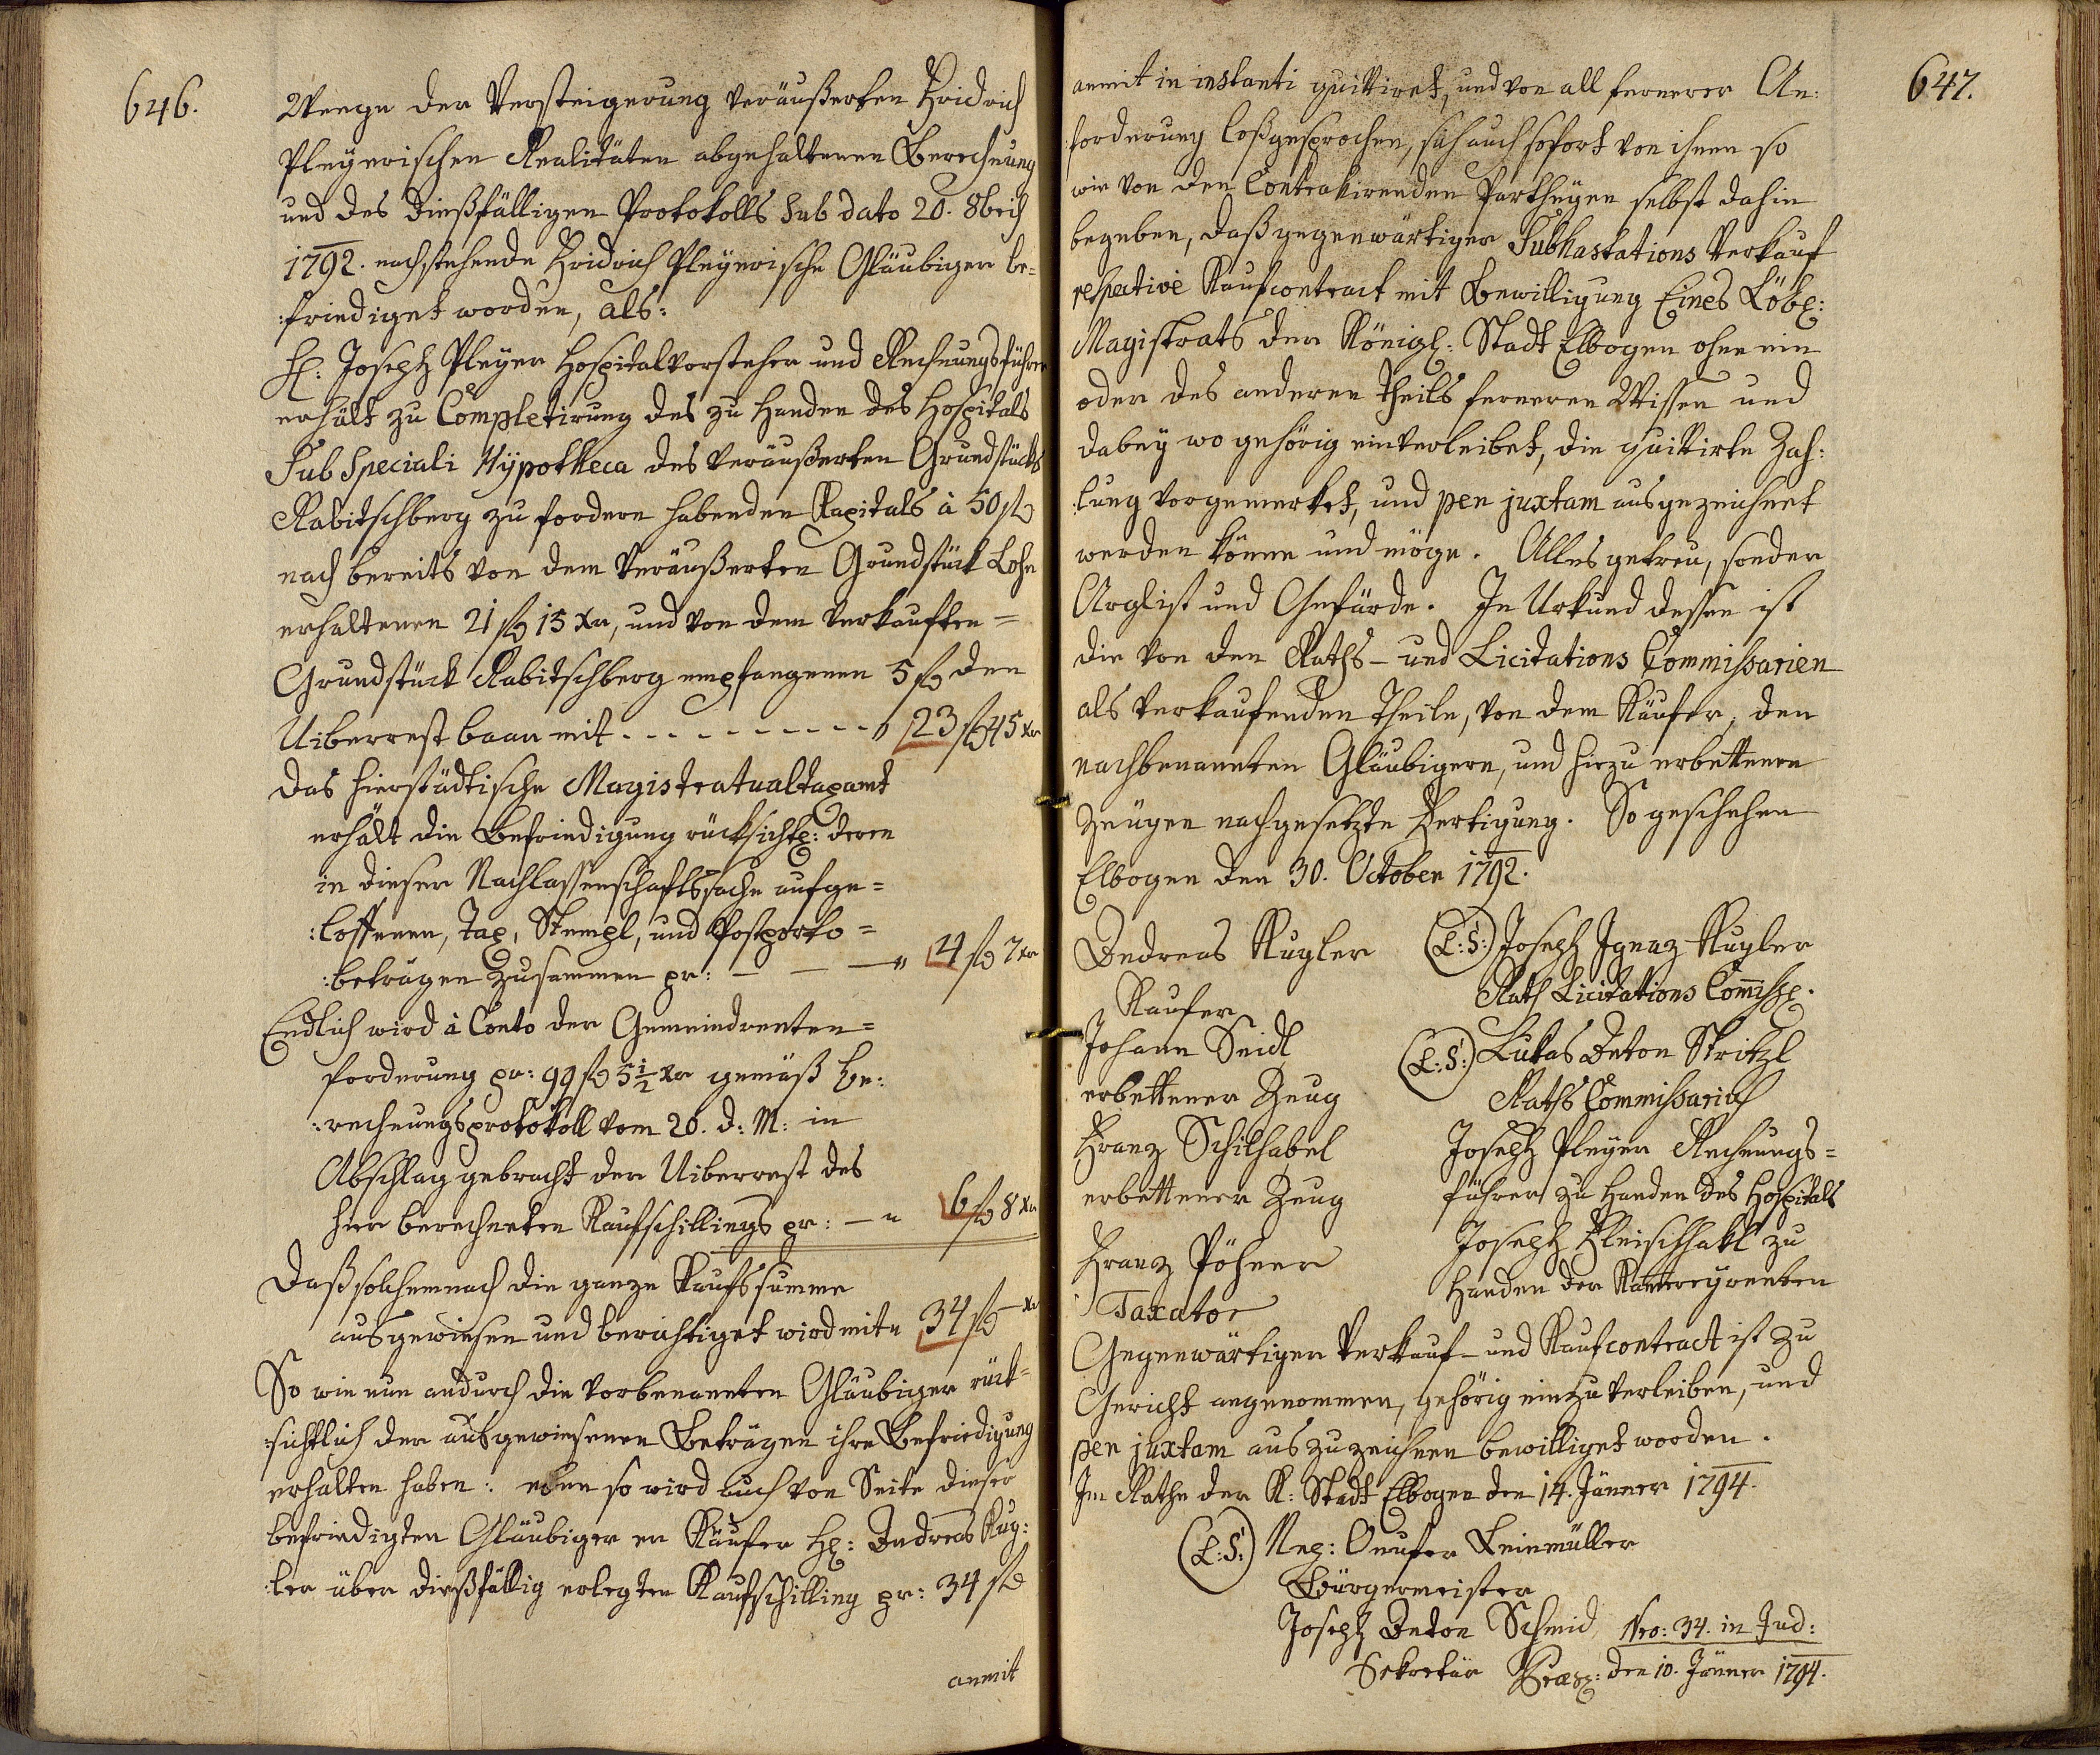 646.
Wenge der Versteigerung veräußerten Fridrich
Pleÿerischen Realitäten abgehaltenen Berechnung
und des dießfälligen Protokolls sub dato 20. 8bris
1792. nachstehende Fridrich Pleÿerische Gläubiger be=
:friediget worden, als:
H: Joseph Pleÿer Hospitalvorsteher und Rechnungsführer
erhält zu Completirung des zu Handen des Hospitals
Sub Speciali Hÿpotheca des veräußerten Grundstücks
Rabitschberg zu fordern habenden Kapitals à 50 fl
nach bereits von dem veräußerten Grundstück Lohe
erhaltenen 21 fl 15 xr, und von dem verkauften=
Grundstück Rabitschberg empfangenen 5 fl den
Uiberrest baar mit - - - - - - - - - " 23 fl 45 xr
Das hierstädtische Magistratualtaxamt
erhält die Befriedigung rücksichtl: deren
in dieser Nachlassenschaftssache aufge=
:loffenen, Tax, Stempl, und Postporto=
:beträgen zusammen pr: — — — " 4 fl 7 xr
Endlich wird à Conto der Gemeindrenten=
forderung pr: 99 fl 5 1/2 xr gemäß Be:
:rechnungsprotokoll vom 20. d: M: in
Abschlag gebracht der Uiberrest des
hier berechneten Kaufschillings pr: — " 6 fl 8 xr
Daß solchemnach die ganze Kaufssumme
ausgewiesen und berichtiget wird mit " 34 fl — xr
So wie nun andurch die vorbenannten Gläubiger rück=
:sichtlich der ausgewiesenen Beträgen ihre Befriedigung
erhalten haben: eben so wird auch von Seite dieser
befriedigten Gläubiger er Käufer H: Andreas Kug:
:ler über dießfällig erlegten Kaufschilling pr: 34 fl
anmit
647.
anmit in instanti quittiret, und von all fernerer An:
:forderung loßgesprochen, sich auch sofort von ihnen so
wie von den Contrahirenden Partheÿen selbst dahin
begeben, daß gegenwärtiger Subhastations Verkauf
respective Kaufcontract mit Bewilligung Eines Löbl:
Magistrats der Königl: Stadt Elbogen ohne ein
oder des anderen Theils ferneren Wissen und
dabeÿ wo gehörig einverleibet, die quittirte Zah:
:lung vorgemerket, und per juxtam ausgezeichnet
werden könne und möge. Alles getreu, sonder
Arglist und Gefärde. In Urkund dessen ist
die von den Raths- und Licitations Commissarien
als verkaufenden Theile, von dem Käufer, den
nachbenannten Gläubigern, und hiezu erbettenen
Zeugen nachgesetzte Fertigung. So geschehen
Elbogen den 30. October 1792.
Andreas Kugler
Kaufer
Johann Seidl
erbettener Zeug
Franz Schilhabel
erbettener Zeug
Franz Pöhner
Taxator
(L:S:) Joseph Ignaz Kugler
Rath Licitations Commiss:
(L:S:) Lukas Anton Stritzl
Raths Commissarius
Joseph Pleÿer Rechnungs=
führer zu Handen des Hospitals
Joseph Fleischhakl zu
Handen der Kam̅ereÿrenten
Gegenwärtiger Verkauf- und Kaufcontract ist zu
Gericht angenommen, gehörig einzuverleiben, und
per juxtam auszuzeichnen bewilliget worden.
Im Rathe der K: Stadt Elbogen den 14. Jänner 1794.
(L:S:) Onufer Leinmüller
Bürgermeister
Joseph Anton Schmid
Sekretär
Nro: 34. in Jud:
Praes: den 10. Jänner 1794.